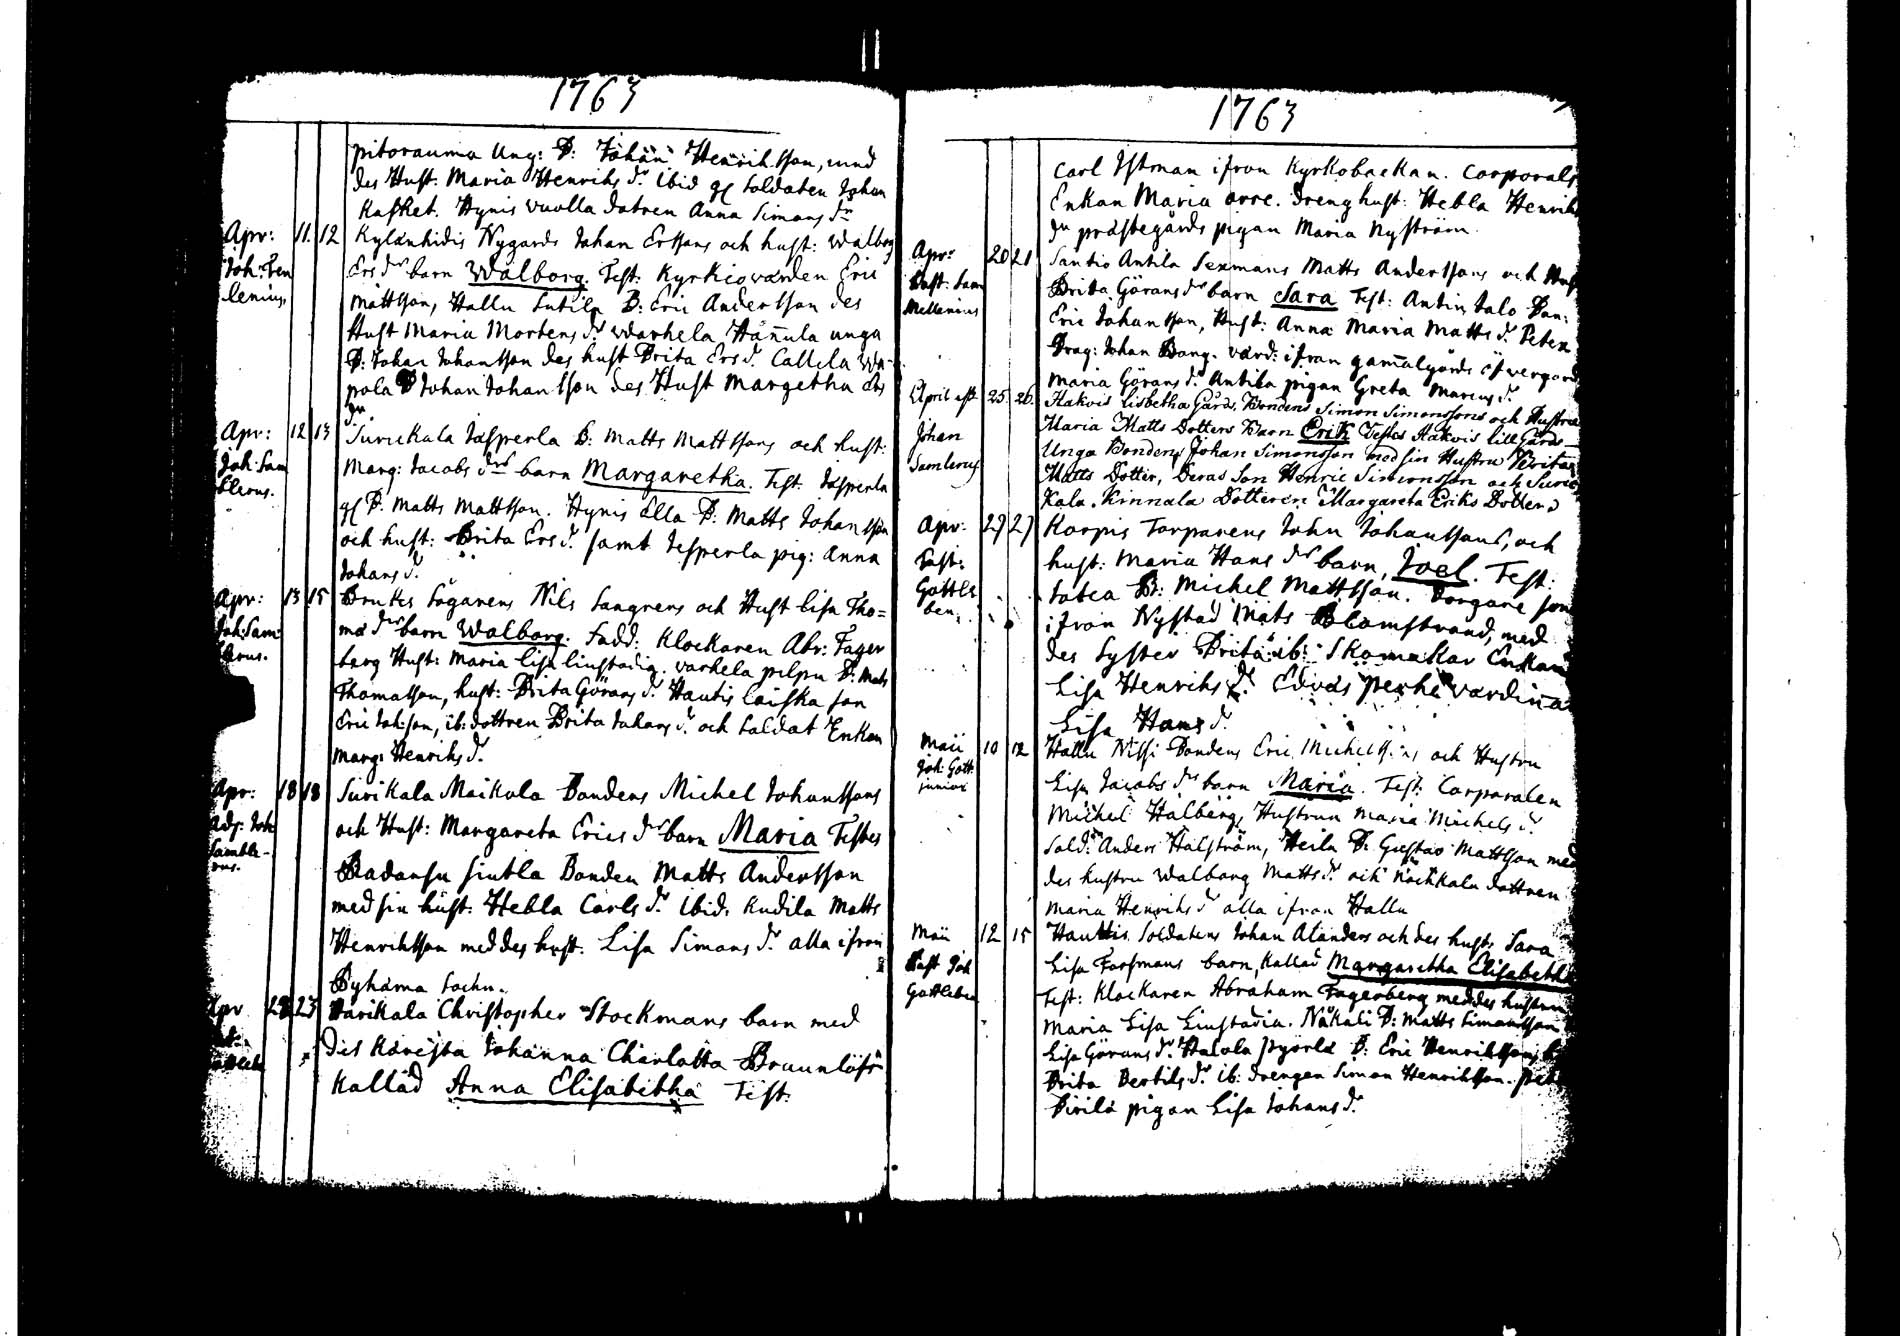 1763
pitorauma Ung: B: Johan Henrichsson, med
des Hust: Maria Henrichs dr ibid gl soldaten Johan
Kasket. Hynis vuolla dotren Anna Simons dr
Apr: 11. 12 Kylänhidis Nygårds Johan Erssons och hust: Walborg
Ers dr barn Walborg. Test: Kyrkiovärden Eric
Joh: Fen
lenius,
Mattsson, Hallu B: Eric Andersson des
Hust Maria Mortens dr Warhela Hañula unga
B: Johan Johansson des hust Brita Ers dr Callela Wa-
pola B Johan Johansson des Hust Margetha Ers
dr
Apr: 12 13 Surikala Jasperla B: Matts Mattssons och hust:
Joh: Sam
blerus.
Marg: Jacobs drs barn Margaretha. Test. Jasperla
gl B. Matts Mattsson. Hynis Ella B: Matts Johansson
och hust: Brita Ers dr samt Jesperla pig: Anna
Johans dr
Apr: 13 15 Bruks Sågarens Nils Sangrens och Hust Lisa Tho=
Joh: Sam
blerus.
mæ drs barn Walborg. Fadd: Klockaren Abr: Fager
berg Hust: Maria Lisa Liustadia. varhela pilpu B: Mats
Thomasson, hust: Brita Görans dr Hautis laiska son
Eric Johsson, ib: dottren Brita Johans dr och Soldat Enkan
Marg: Henrichs dr
Apr: 18 18 Surikala Maikola Bondens Michel Johanssons
Adj. Joh
Samble-
rus.
och Hust: Margareta Erics drs barn Maria Testes
Badansu sintla Bonden Matts Andersson
med sin hust: Hebla Carls dr ibid. Kudila Matts
Henrichsson med des hust. Lisa Simons dr alla ifrån
Pyhäma Sochn.
Apr 23 Darikala Christopher Stockmans barn med
des Käresta Johanna Charlotta Braunlöfs
Kallad Anna Elisabetha Test:
1763
Carl Istman ifrån Kyrkobackan. Corporals
Enkan Maria orre. Dreng hust: Hebla Henrichs
dr prästegårds pigan Maria Nyström.
Apr: 20 21 Santio Antila Sexmans Matts Anderssons och Hust
Past: Sam
Mellenius
Brita Görans drs barn Sara Test: Antin talo Bon:
Eric Johansson, Hust: Anna Maria Matts dr Peter
Drag: Johan Bang. värd: ifrån gamalgårds öfvergård
Maria Görans dr Antila pigan Greta Marcus dr
April 25 26. Hakvis Lisbetha Gårds, Bondens Simon Simonssons och Hustru
Johan
Samlerus
Maria Matts Dotters Barn Erik Testes Hakvis lill Gårds
Unga Bonden Johan Simonsson med sin Hustru Brita
Matts Dotter, Deras Son Henric Simonsson och Suri
Kala. Kinnala Dotteren Margareta Eriks Dotter
Apr: 27 27 Korpis Torparens John Johanssons, och
Past:
Gottle
ben.
hust: Maria Hans drs barn, Joel. Test:
totca B: Michel Mattsson. Borgare son
ifrån Nystad Mats Blomstrand, med
des Syster Brita ib: Skomakar Enkan
Lisa Henrichs dr. Edvas perhe värdiña
Lisa Hans dr
Maii 10 12 Hallu Nissi Bondens Eric Michelssons och Hustru
Joh: Gott
junior
Lisa Jacobs drs barn Maria. Test: Corporalen
Michel Halberg, Hustrun Maria Michels dr
Sold: Anders Halström, Heila B: Gustav Mattsson med
des hustru Walborg Matts dr och dottren
Maria Henrichs dr alla ifrån Hallu
Maii 12 15 Hautis Soldatens Johan Alanders och des hust: Sara
Past Joh
Gottleben
Lisa Forsmans barn, Kallad Margaretha Elisabetha
Test: Klockaren Abraham Fagerberg med des hustru
Maria Lisa Liustadia. Näkali B: Matts Simonsson
Lisa Görans dr. Hatola Pyörlä B: Eric Henrichsson
Brita Bertils dr ib: drengen Simon Henrichsson.
Birilä pigan Lisa Johans dr